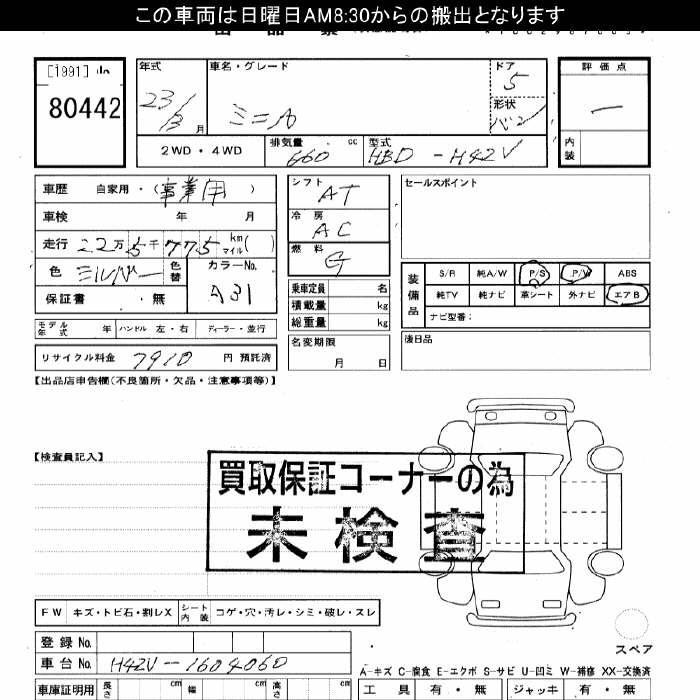 この車両は日曜日AM8:30からの搬出となります
[1991]
80442
年式 車名・グレード ドア 評価点
23/3月 ミニカ 5 一
形状 バン
2WD・4WD 排気量 660 cc 型式 HBD-H42V 内装
車歴 自家用・(事業用)
車検 年 月
走行 22万5千775 km マイル( )
色 シルバー 色替 カラーNo. A31
保証書 ・無
シフト AT
冷房 AC
燃料 G
乗車定員 名
積載量 kg
総重量 kg
名変期限 月 日
セールスポイント
装備品 S/R 純A/W P/S P/W ABS
純TV 純ナビ 革シート 外ナビ エアB
ナビ型番:
後日品
モデル年式 年 ハンドル 左・右 ディーラー・並行
リサイクル料金 7910 円 預託済
【出品店申告欄(不良箇所・欠品・注意事項等)】
【検査員記入】
買取保証コーナーの為
未検査
FW キズ・トビ石・割レX シート内装 コゲ・穴・汚レ・シミ・破レ・スレ
登録No.
車台No. H42V-1604060
スペア
A-キズ C-腐食 E-エクボ S-サビ U-凹ミ W-補修 XX-交換済
車庫証明用 長さ cm 幅 cm 高さ cm 工具 有・無 ジャッキ 有・無